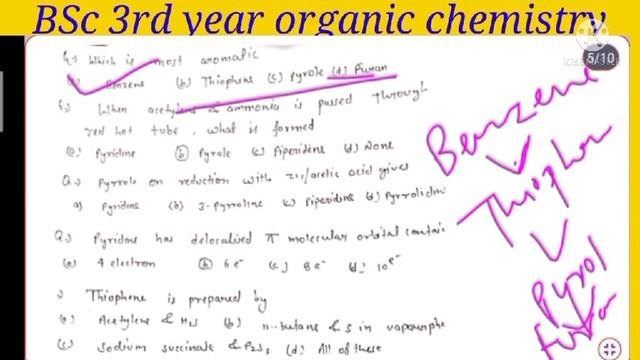 BSc 3rd year organic chemistry
5/10
Q. Which is most aromatic
(a) Benzene (b) Thiophene (c) Pyrole (d) Furan
Q. When acetylene & ammonia is passed through
red hot tube, what is formed
(a) Pyridine (b) Pyrole (c) Piperidine (d) None
Q. Pyrrole on reduction with Zn/acetic acid gives
a) Pyridine (b) 3-Pyrroline (c) Piperidine d) Pyrrolidin
Q. Pyridine has delocalised π molecular orbital contain
(a) 4 electron (b) 6e⁻ (c) 8e⁻ (d) 10e⁻
Thiophene is prepared by
(a) Acetylene & H₂S (b) n-butane & S in vapourphe
(c) Sodium succinate & P₂S₃ (d) All of these
Benzene
Thiophen
Pyrol
Furan